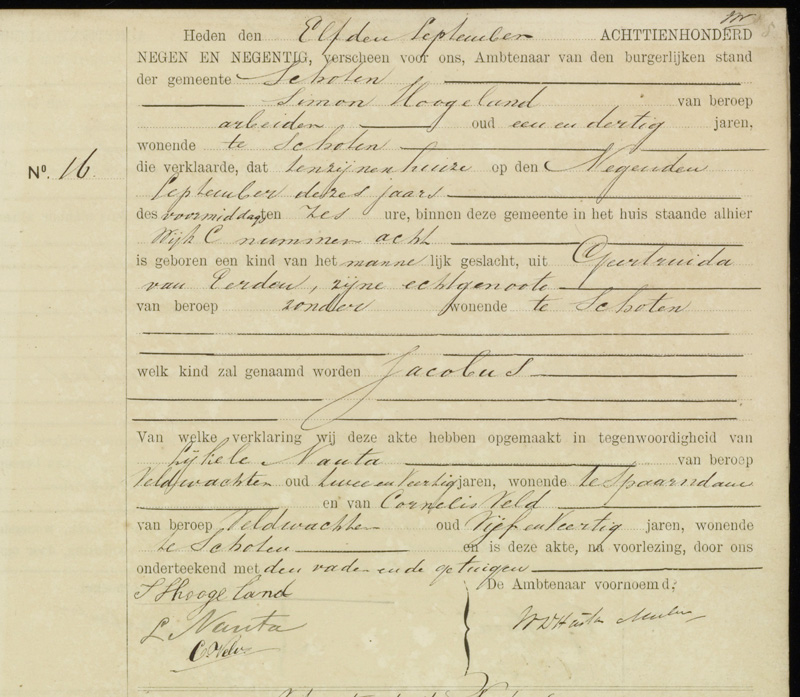 Heden den Elfden September ACHTTIENHONDERD
NEGEN EN NEGENTIG, verscheen voor ons, Ambtenaar van den burgerlijken stand
der gemeente Schoten
Simon Hoogeland van beroep
arbeider oud een en dertig jaren,
wonende te Schoten
No. 16.
die verklaarde, dat tenzijnenhuize op den Negenden
September dezes jaars
des voormiddags ten zes ure, binnen deze gemeente in het huis staande alhier
Wijk C nummer acht
is geboren een kind van het mannelijk geslacht, uit Geertruida
van Eerden, zijne echtgenoote
van beroep zonder wonende te Schoten
welk kind zal genaamd worden Jacobus
Van welke verklaring wij deze akte hebben opgemaakt in tegenwoordigheid van
Nauta van beroep
Veldwachter oud twee en Veertig jaren, wonende te Spaarndam
en van Cornelis Veld
van beroep Veldwachter oud Vijf en Veertig jaren, wonende
te Schoten en is deze akte, na voorlezing, door ons
onderteekend met den vader en de getuigen
S Hoogeland De Ambtenaar voornoemd,
L Nauta
C Veld